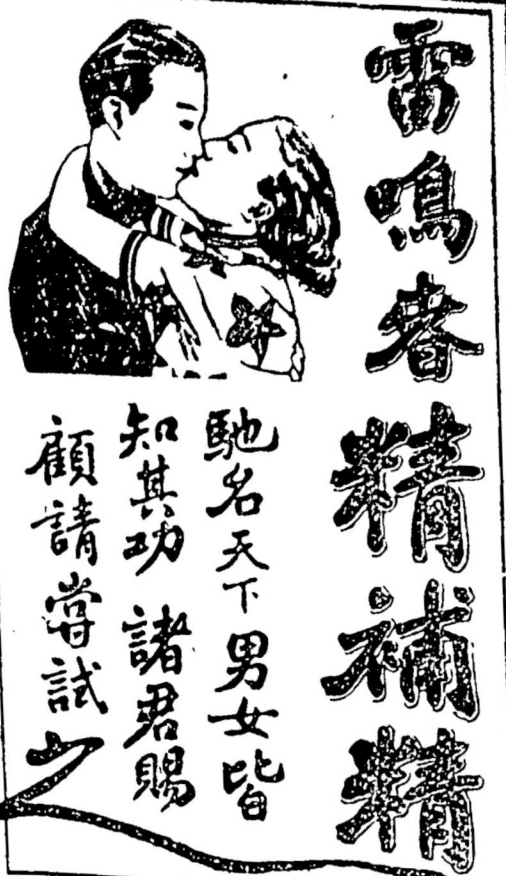 雷鳴春精補精
馳名天下男女皆
知其功 諸君賜
顧請嘗試之